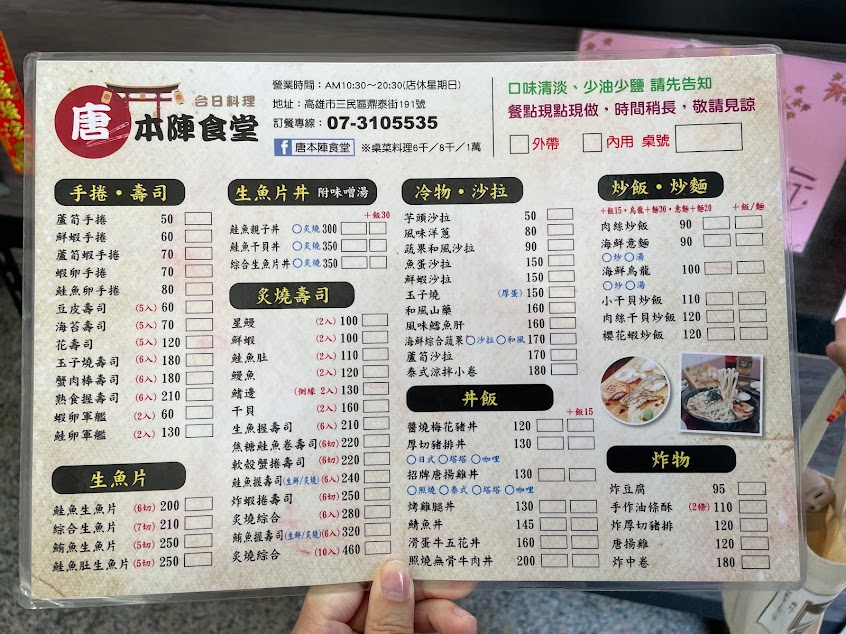 唐
台日料理
本陣食堂
營業時間：AM10:30～20:30(店休星期日)
地址：高雄市三民區鼎泰街191號
訂餐專線：07-3105535
f 唐本陣食堂 ※桌菜料理6千／8千／1萬
口味清淡、少油少鹽 請先告知
餐點現點現做，時間稍長，敬請見諒
外帶 內用 桌號
手捲・壽司
蘆筍手捲 50
鮮蝦手捲 60
蘆筍蝦手捲 70
蝦卵手捲 70
鮭魚卵手捲 80
豆皮壽司 (5入) 60
海苔壽司 (5入) 70
花壽司 (5入) 120
玉子燒壽司 (6入) 180
蟹肉棒壽司 (6入) 180
熟食握壽司 (6入) 210
蝦卵軍艦 (2入) 60
鮭卵軍艦 (2入) 130
生魚片
鮭魚生魚片 (6切) 200
綜合生魚片 (7切) 210
鮪魚生魚片 (5切) 250
鮭魚肚生魚片 (5切) 250
生魚片丼 附味噌湯
＋飯30
鮭魚親子丼 ○炙燒 300
鮭魚干貝丼 ○炙燒 350
綜合生魚片丼 ○炙燒 350
炙燒壽司
星鰻 (2入) 100
鮮蝦 (2入) 100
鮭魚肚 (2入) 110
鰻魚 (2入) 120
鰭邊 (側緣 2入) 130
干貝 (2入) 160
生魚握壽司 (6入) 210
焦糖鮭魚卷壽司 (6切) 220
軟殼蟹捲壽司 (6切) 220
鮭魚握壽司(生鮮/炙燒) (6入) 240
炸蝦捲壽司 (6切) 250
炙燒綜合 (6入) 280
鮪魚握壽司(生鮮/炙燒) (6入) 320
炙燒綜合 (10入) 460
冷物・沙拉
芋頭沙拉 50
風味洋蔥 80
蔬果和風沙拉 90
魚蛋沙拉 150
鮮蝦沙拉 150
玉子燒 (厚蛋) 150
和風山藥 160
風味鱈魚肝 160
海鮮綜合蔬果 ○沙拉 ○和風 170
蘆筍沙拉 170
泰式涼拌小卷 180
丼飯
＋飯15
醬燒梅花豬丼 120
厚切豬排丼 130
○日式 ○塔塔 ○咖哩
招牌唐揚雞丼 130
○照燒 ○泰式 ○塔塔 ○咖哩
烤雞腿丼 130
鯖魚丼 145
滑蛋牛五花丼 160
照燒無骨牛肉丼 200
炒飯・炒麵
＋飯15・烏龍＋麵30・意麵＋麵20 ＋飯/麵
肉絲炒飯 90
海鮮意麵 90
○炒 ○湯
海鮮烏龍 100
○炒 ○湯
小干貝炒飯 110
肉絲干貝炒飯 120
櫻花蝦炒飯 120
炸物
炸豆腐 95
手作油條酥 (2條) 110
炸厚切豬排 120
唐揚雞 120
炸中卷 180